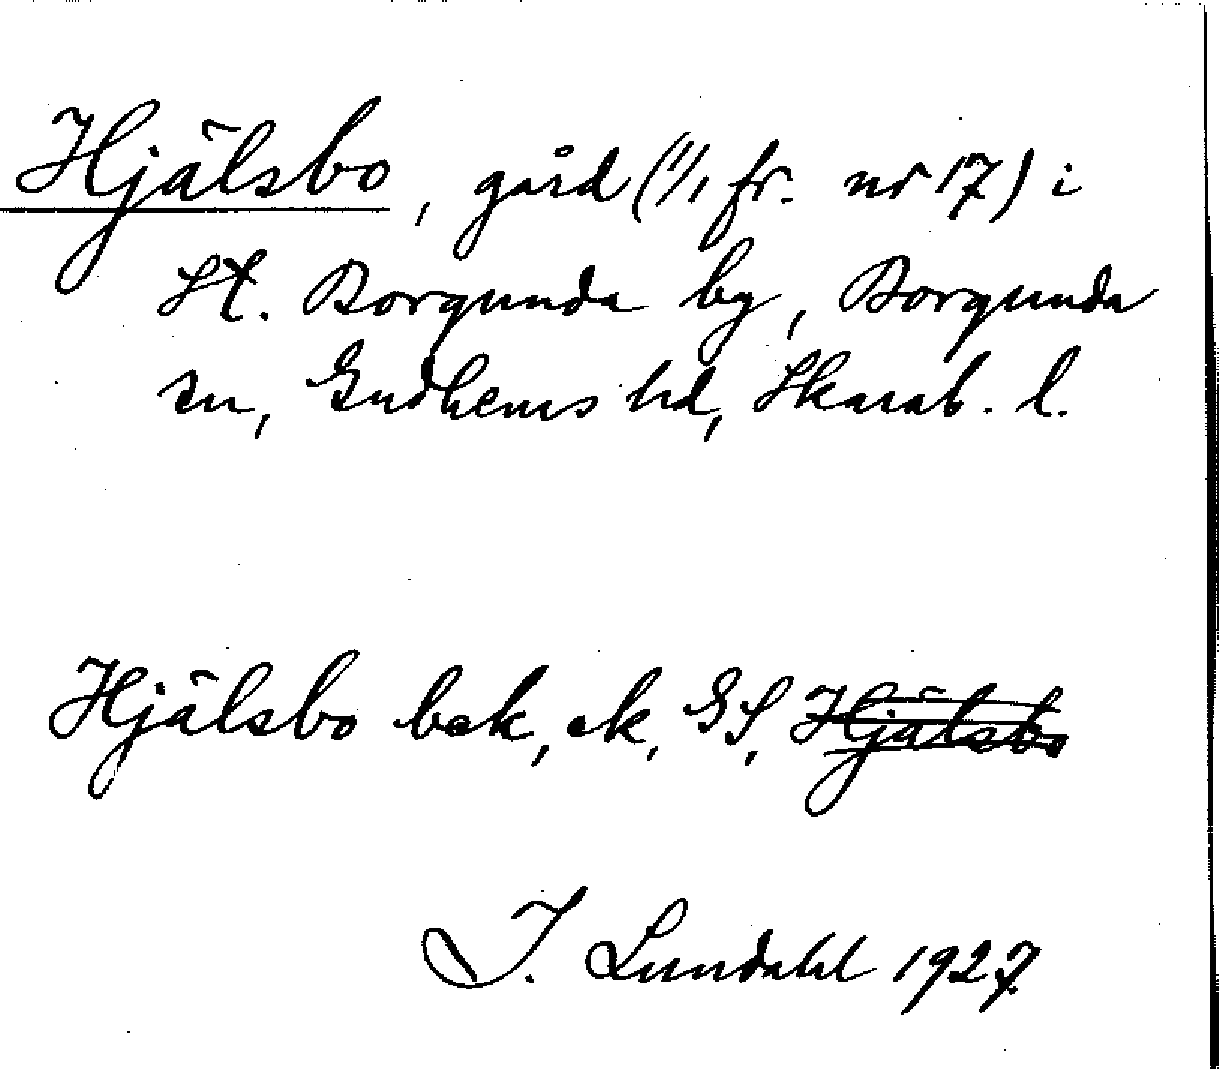 Hjälsbo, gård (1/1 fr. nr 17) i
St. Borgunda by, Borgunda
sn, Gudhems hd, Skarab. l.
Hjälsbo bek, ek, GS, Hjälsbo
I. Lundahl 1927.